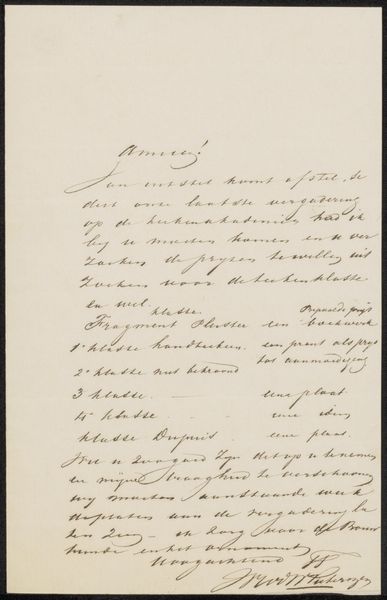 Amice!
Van uitstel komt afstel, se
dert onze laatste vergadering
op de teekenakademie had ik
bij u moeten komen en u ver
zoeken de pryzen te willen uit
zoeken voor de teekenklasse
en wel.
klasse Proponeerde prijs
Fragment Pleister een boekwerk
1e klasse handteeken. een prent als prijs
tot aanmoediging
2e klasse niet bekroond
3 klasse. — eene plaat.
4 klasse. - - eene idem
klasse Dupuis. eene plaat.
Wil u zoo goed zijn dit op u te nemen
en mijne traagheid te verschoonen
wij moeten aanstaande week
de platen aan de vergadering la
ten zien — ik zorg voor de Bouw
kunde en het ornament
Hoogachtend